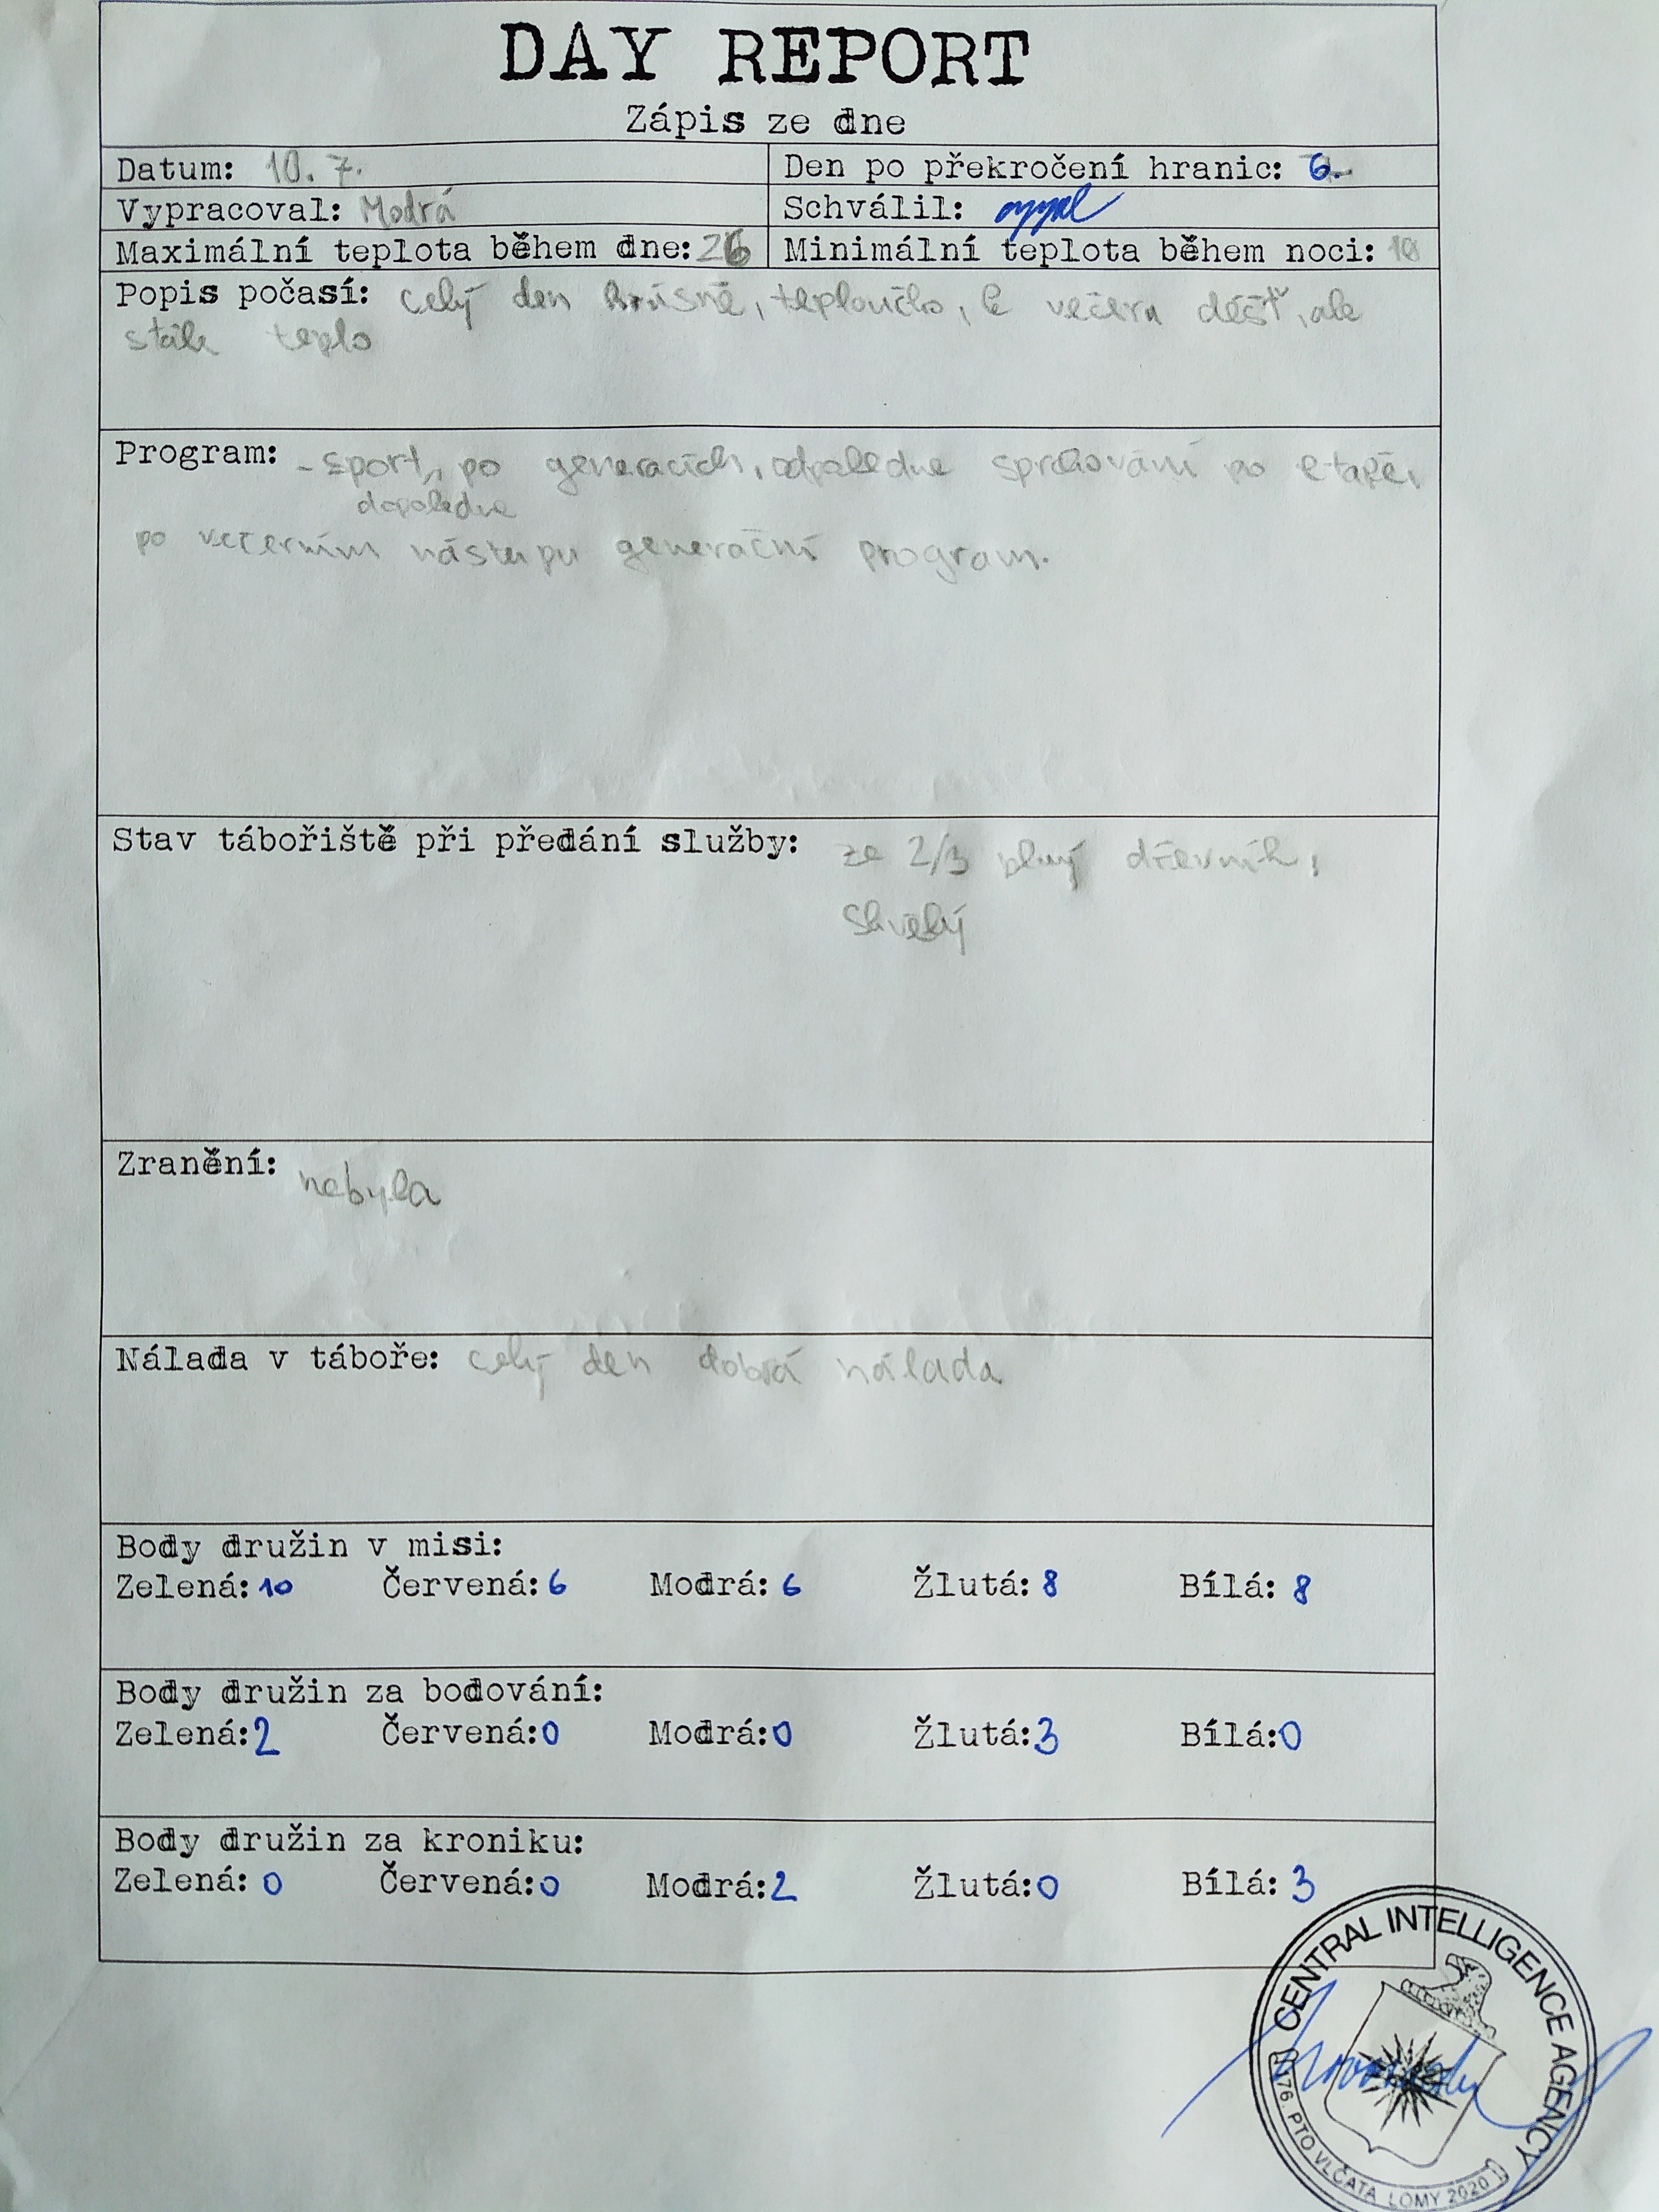 DAY REPORT
Zápis ze dne
Datum: 10. 7.
Den po překročení hranic: 6.
Vypracoval: Modrá
Schválil:
Maximální teplota během dne: 26
Minimální teplota během noci: 10
Popis počasí: celý den krásně, teploučko, k večeru déšť, ale
stále teplo
Program: - sport, po generacích, odpoledne sprchování po etapě,
dopoledne
po večerním nástupu generační program.
Stav tábořiště při předání služby: ze 2/3 plný dřevník,
skvělý
Zranění: nebyla
Nálada v táboře: celý den dobrá nálada
Body družin v misi:
Zelená: 10 Červená: 6 Modrá: 6 Žlutá: 8 Bílá: 8
Body družin za bodování:
Zelená: 2 Červená: 0 Modrá: 0 Žlutá: 3 Bílá: 0
Body družin za kroniku:
Zelená: 0 Červená: 0 Modrá: 2 Žlutá: 0 Bílá: 3
CENTRAL INTELLIGENCE AGENCY
176. PTO VLČATA LOMY 2020